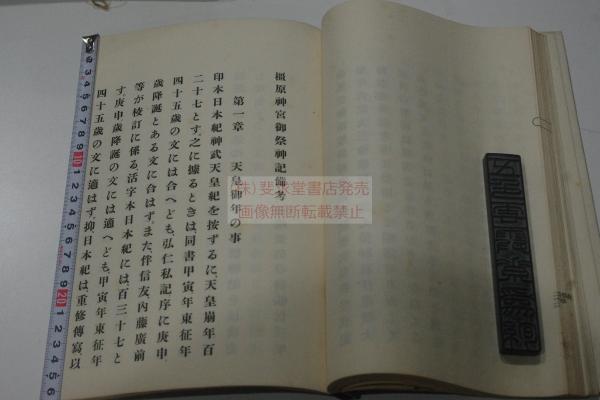 橿原神宮御祭神記備考
第一章 天皇御年の事
印本日本紀神武天皇紀を按ずるに、天皇崩年百
二十七とす、之に據るときは同書甲寅年東征年
四十五歳の文には合へども、弘仁私記序に庚申
歳降誕とある文に合はず、また、伴信友、內藤廣前
等が校訂に係る活字本日本紀には、百三十七と
す、庚申歳降誕の文には適へども、甲寅年東征年
四十五歳の文に適はず、抑日本紀は、重修傳寫以
(株)斐求堂書店発売
画像無断転載禁止